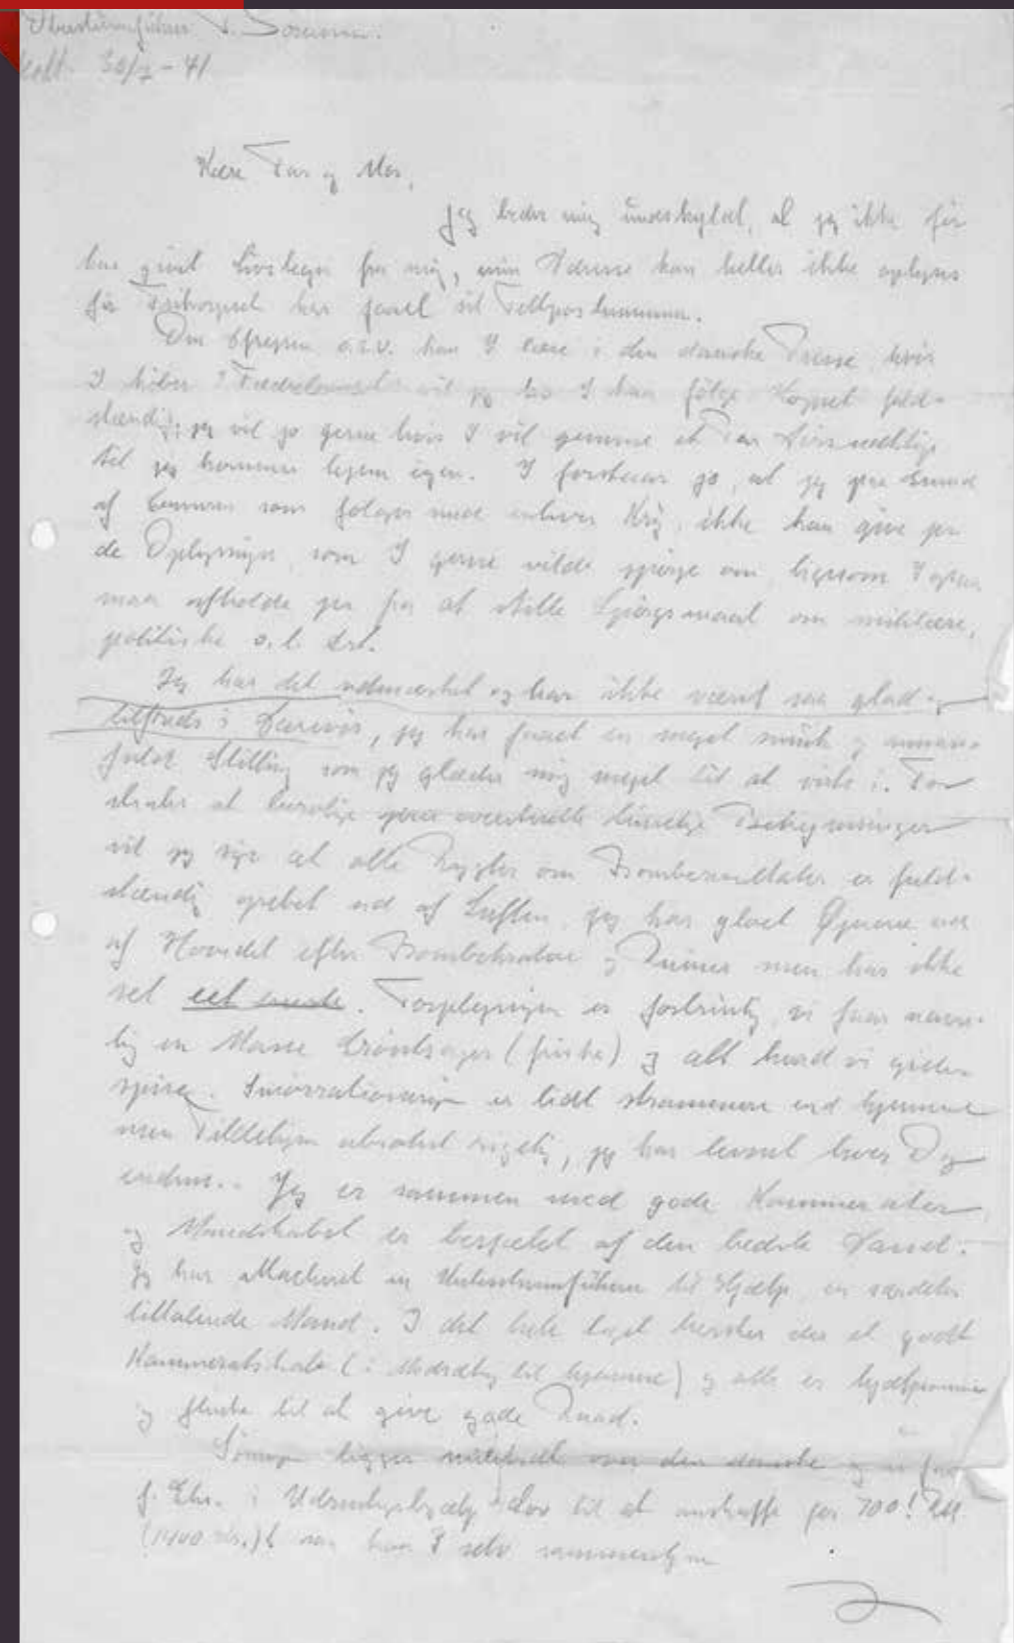 Obersturmführer P. Sörensen.
30/7 - 41
Kære Far og Mor,
Jeg beder mig undskyldt, at jeg ikke før
har givet Livstegn fra mig, min Adresse kan heller ikke oplyses
før Frikorpset har faaet sit Feltpostnummer.
Om o.s.v. kan I læse i den danske Presse, hvis
I køber "Fædrelandet" vil jeg tro I kan følge Korpset fuld-
stændig, jeg vil jo gerne hvis I vil gemme et Par
til jeg kommer hjem igen. I forstaar jo, at jeg paa Grund
af Censuren som følger med enhver Krig, ikke kan give jer
de Oplysninger, som I gerne vilde spørge om, ligesom I ogsaa
maa afholde jer fra at stille Spørgsmaal om militære,
politiske o.l. Art.
Jeg har det udmærket og har ikke været saa glad og
tilfreds i Aarevis, jeg har faaet en meget smuk og ansvars-
fuld Stilling som jeg glæder mig meget til at virke i. For
straks at berolige jeres eventuelle Bekymringer
vil jeg sige at alle Rygter om Bomberesultater er fuld-
stændig grebet ud af Luften, jeg har gloet Øjnene ud
af Hovedet efter Bombekratere og Ruiner men har ikke
set eet eneste. Forplejningen er fortrinlig, vi faar navn-
lig en Masse Grøntsager (friske) og alt hvad vi gider
spise. Smørrationeringen er lidt strammere end hjemme
men Tildelingen absolut rigelig, jeg har levnet hver Dag
endnu. Jeg er sammen med gode Kammerater
og Mandskabet er besjælet af den bedste Aand.
Jeg har en Untersturmführer til Hjælp, en særdeles
tiltalende Mand. I det hele taget hersker der et godt
Kammeratskab (i Modsætning til hjemme) og alle er hjælpsomme
og flinke til at give gode Raad.
Lønnen ligger over den danske og vi faar
f. Eks. i Udrustningshjælp Lov til at anskaffe for 700! RM.
(1400 Kr.) saa kan I selv sammenligne